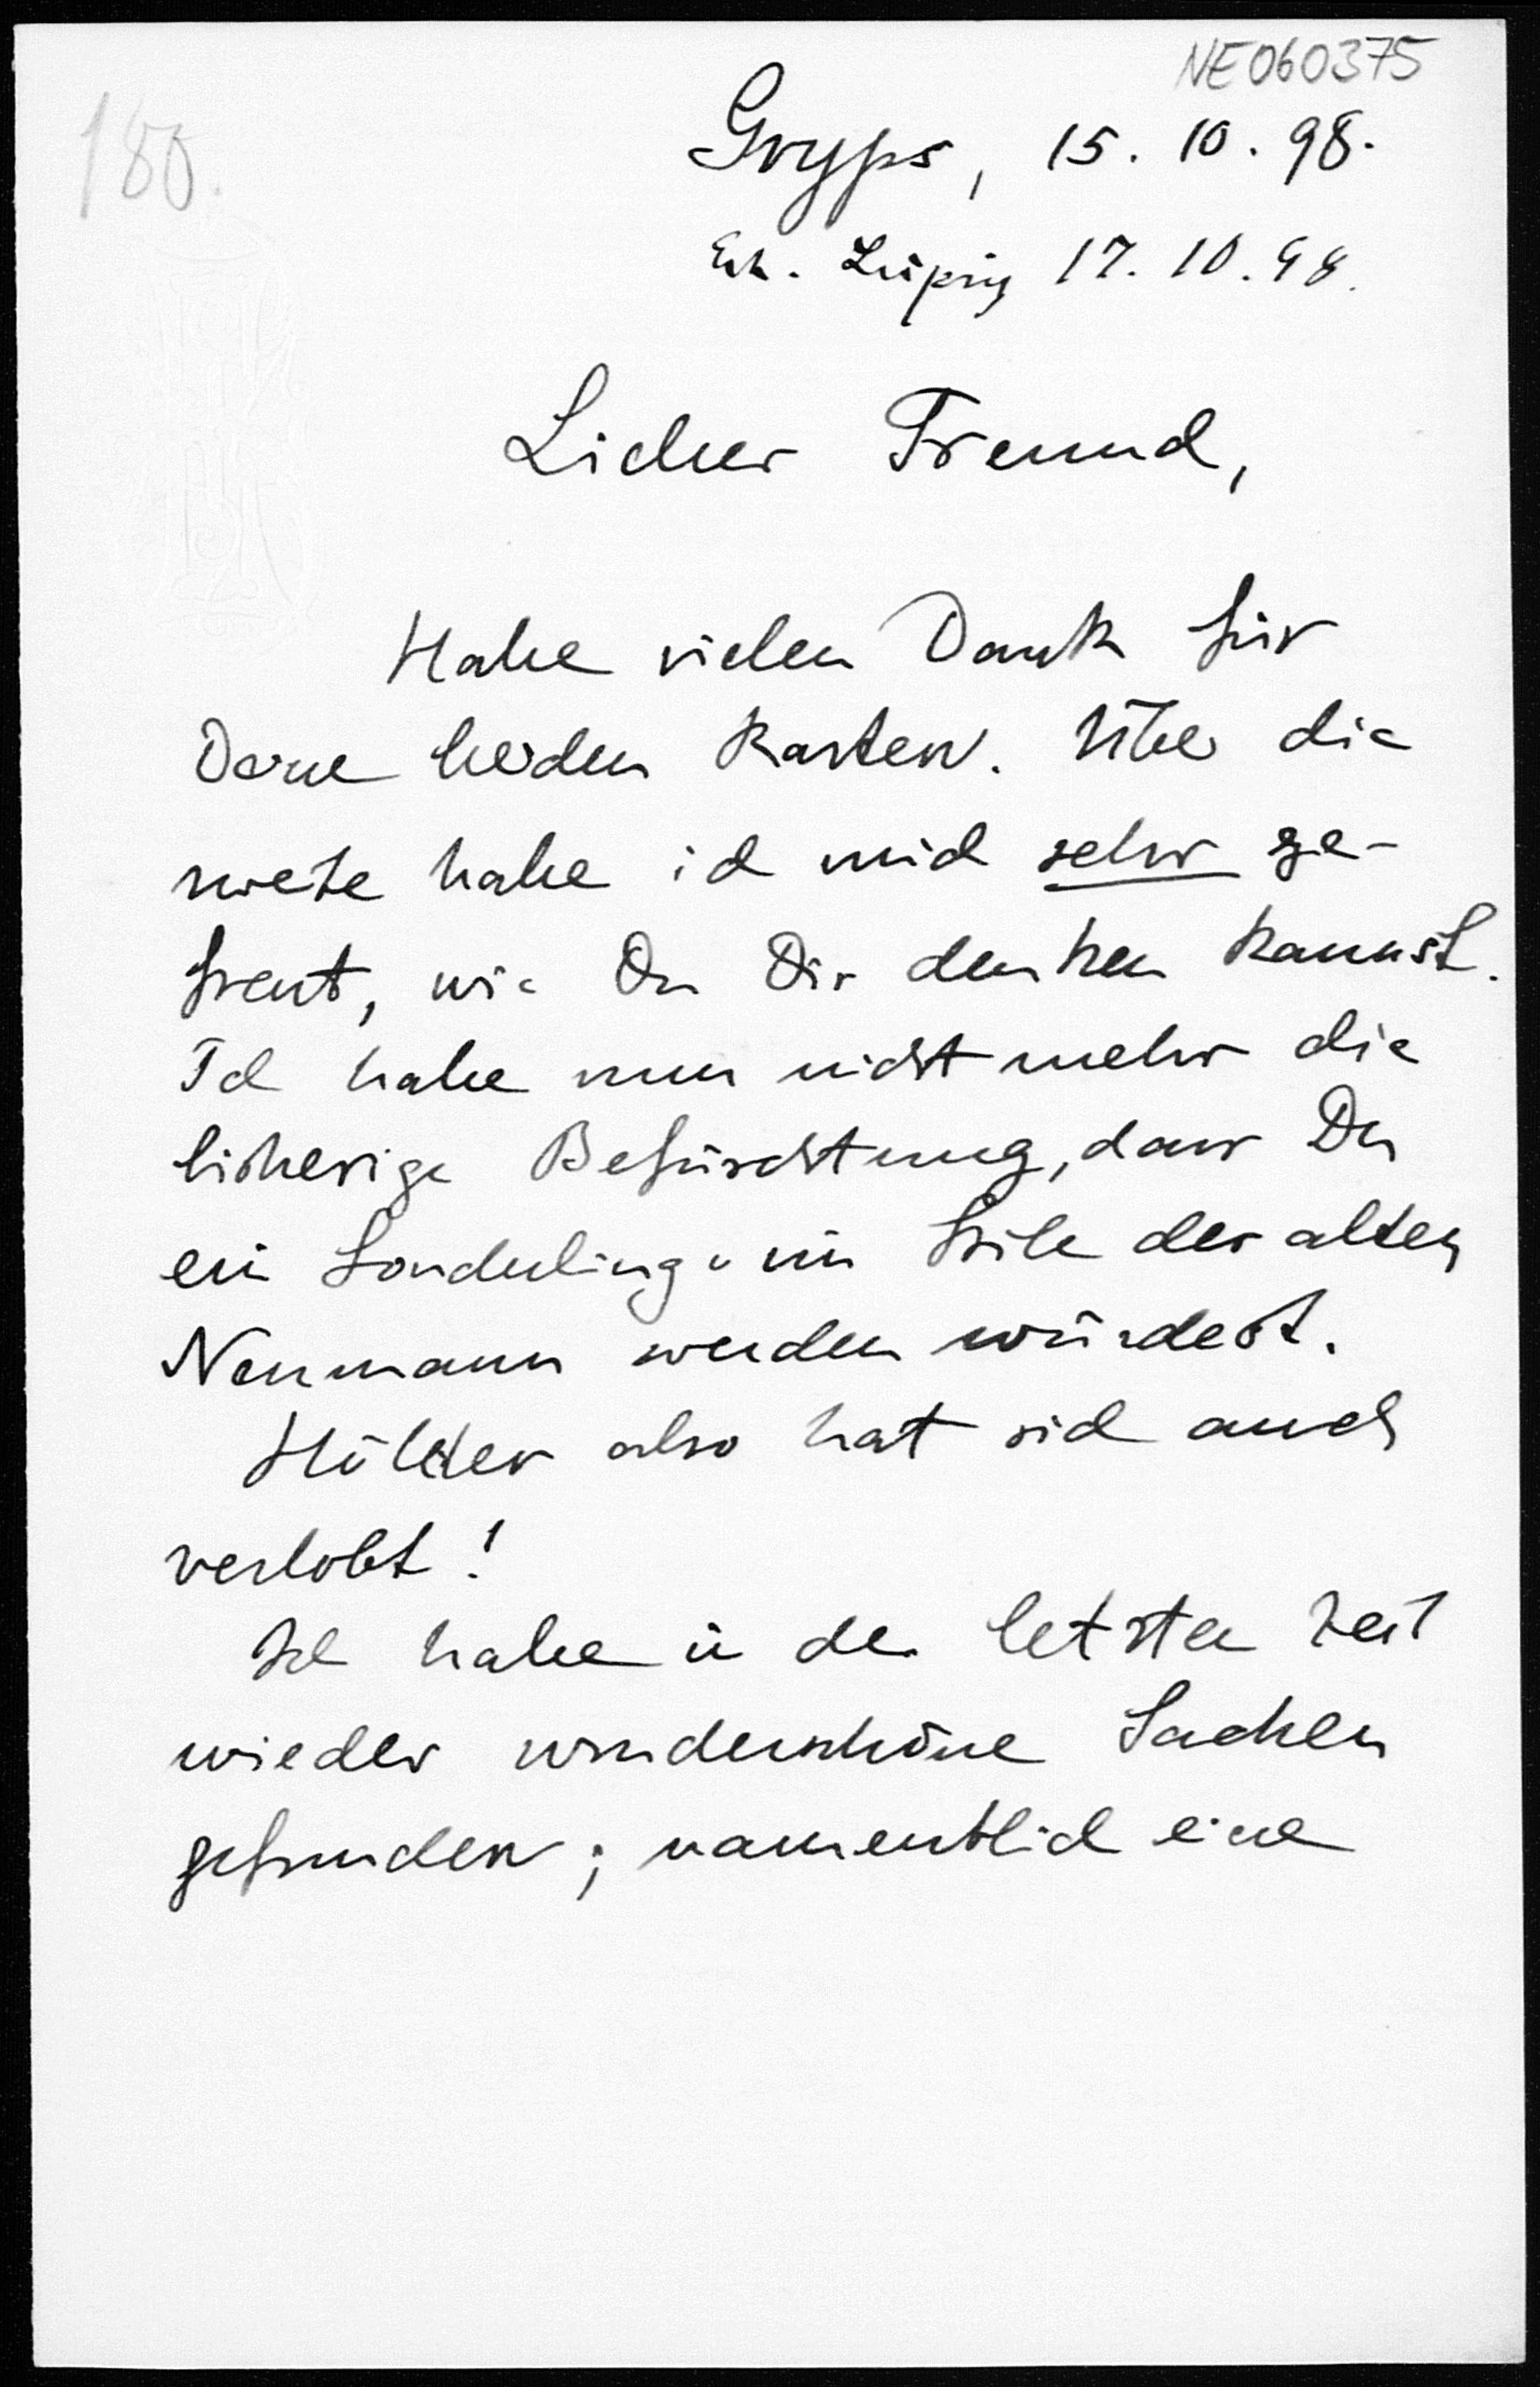 NE060375
180.
Gryps, 15. 10. 98.
Erh. Leipzig 17. 10. 98.
Lieber Freund,
Habe vielen Dank für
Deine beiden Karten. Über die
zweite habe ich mich sehr ge-
freut, wie Du Dir denken kannst.
Ich habe nun nicht mehr die
bisherige Befürchtung, dass Du
ein Sonderling im Stile des alten
Neumann werden würdest.
Hölder also hat sich auch
verlobt!
Ich habe in der letzten Zeit
wieder wunderschöne Sachen
gefunden; namentlich eine